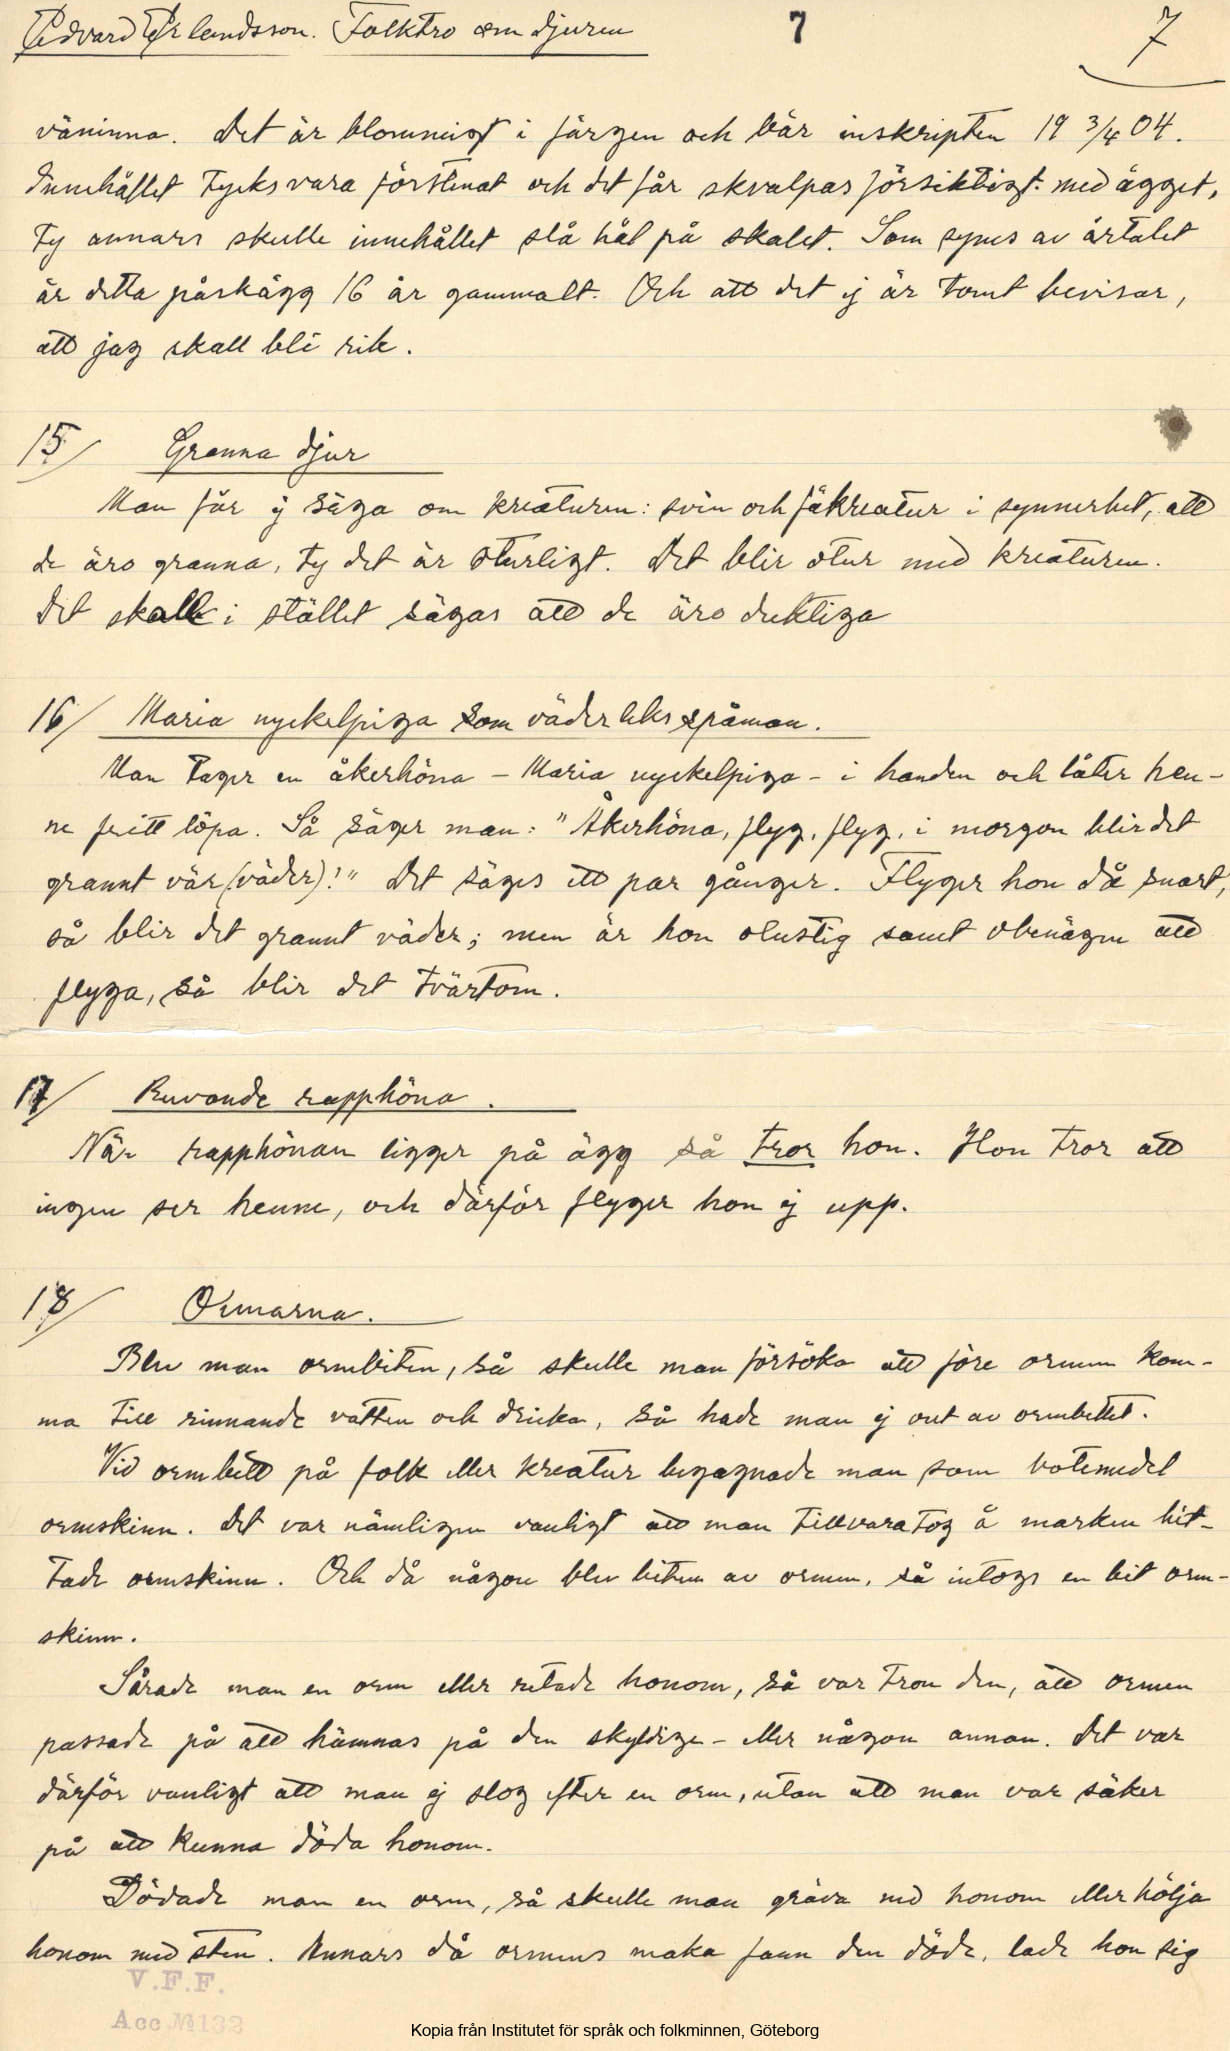 Edvard Erlandsson. Folktro om djuren 7 7
väninna. Det är blommigt i färgen och bär inskripten 19 3/4 04.
Innehållet tycks vara förstenat och det får skvalpas försiktigt med ägget,
ty annars skulle innehållet slå hål på skalet. Som synes av årtalet
är detta påskägg 16 år gammalt. Och att det ej är tomt bevisar,
att jag skall bli rik.
15/ Granna djur
Man får ej säga om kreaturen: svin och fäkreatur i synnerhet, att
de äro granna, ty det är oturligt. Det blir otur med kreaturen.
Det skall i stället sägas att de äro duktiga
16/ Maria nyckelpiga som väderleksspåman.
Man tager en åkerhöna – Maria nyckelpiga – i handen och låter hen-
ne fritt löpa. Så säger man: "Åkerhöna, flyg, flyg, i morgon blir det
grannt vär (väder)!" Det säges ett par gånger. Flyger hon då snart,
så blir det grannt väder; men är hon olustig samt obenägen att
flyga, så blir det tvärtom.
17/ Ruvande rapphöna.
När rapphönan ligger på ägg så tror hon. Hon tror att
ingen ser henne, och därför flyger hon ej upp.
18/ Ormarna.
Blev man ormbiten, så skulle man försöka att före ormen kom-
ma till rinnande vatten och dricka, så hade man ej ont av ormbettet.
Vid ormbett på folk eller kreatur begagnade man som botemedel
ormskinn. Det var nämligen vanligt att man tillvaratog å marken hit-
tade ormskinn. Och då någon blev biten av ormen, så intogs en bit orm-
skinn.
Sårade man en orm eller retade honom, så var tron den, att ormen
passade på att hämnas på den skyldige – eller någon annan. Det var
därför vanligt att man ej slog efter en orm, utan att man var säker
på att kunna döda honom.
Dödade man en orm, så skulle man gräva ned honom eller hölja
honom med sten. Annars då ormens maka fann den döde, lade hon sig
V.F.F.
Acc № 132
Kopia från Institutet för språk och folkminnen, Göteborg